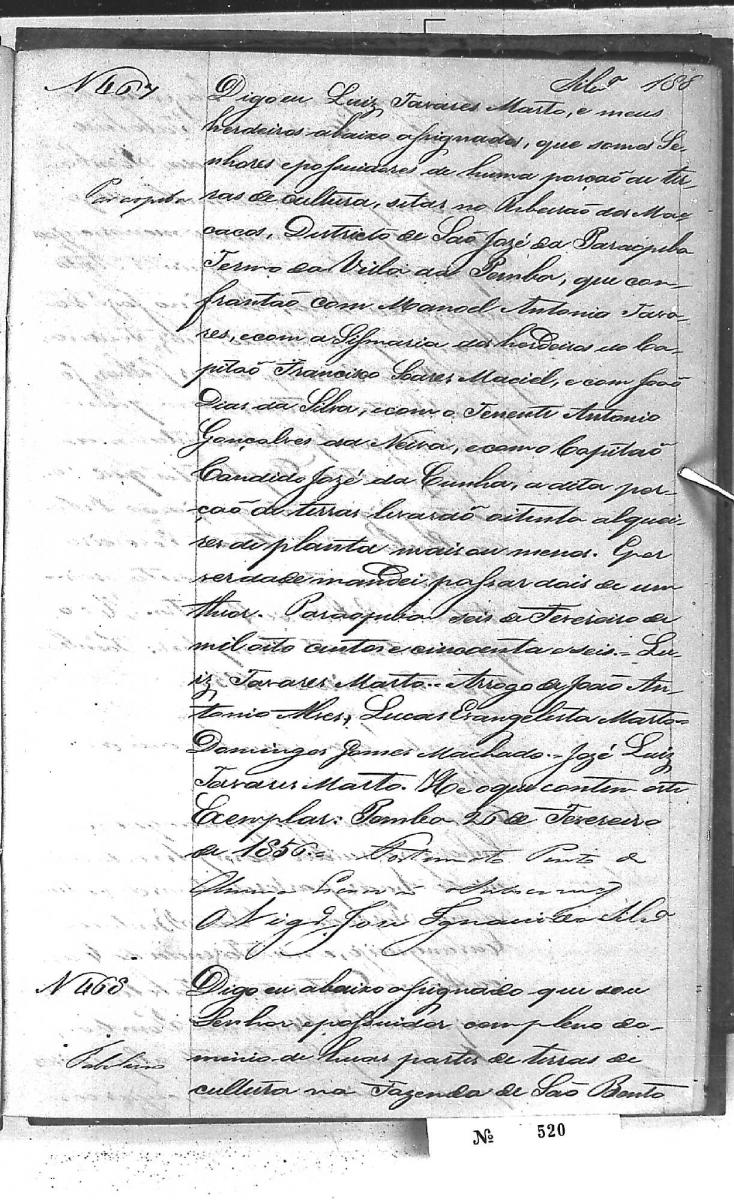 N 467
Silvª 188
Digo eu Luiz Tavares Marto, e meus
herdeiros abaixo assignados, que somos Se-
nhores e possuidores de huma porção de ter-
Paraopeba
ras de cultura, sitas no Ribeirão dos Ma-
cacos, Districto de São José da Paraopeba
Termo da Villa da Pomba, que con-
frontaõ com Manoel Antonio Tava-
res, e com a Sesmaria dos herdeiros do Ca-
pitaõ Francisco Soares Maciel, e com João
Dias da Silva, e com o Tenente Antonio
Gonçalves da Neiva, e com o Capitaõ
Candido José da Cunha, a dita por-
caõ de terras levaráõ oitenta alquei-
res de planta mais ou menos. E por
verdade mandei passar dois de um
theor. Paraopeba seis de Fevereiro de
mil oito centos e cincoenta e seis. = Lu-
iz Tavares Marto. = Arrogo de João An-
tonio Alves, Lucas Evangelista Marto =
Domingos Gomes Machado. = José Luiz
Tavares Marto. He o que contem este
Exemplar: Pomba 26 de Fevereiro
de 1856. = Pinto de
O Vigº. José Ignacio da Silvª
N 468
Digo eu abaixo assignado que sou
Senhor e possuidor com pleno do-
minio de huas partes de terras de
cultura na Fazenda de São Bento
Nº 520